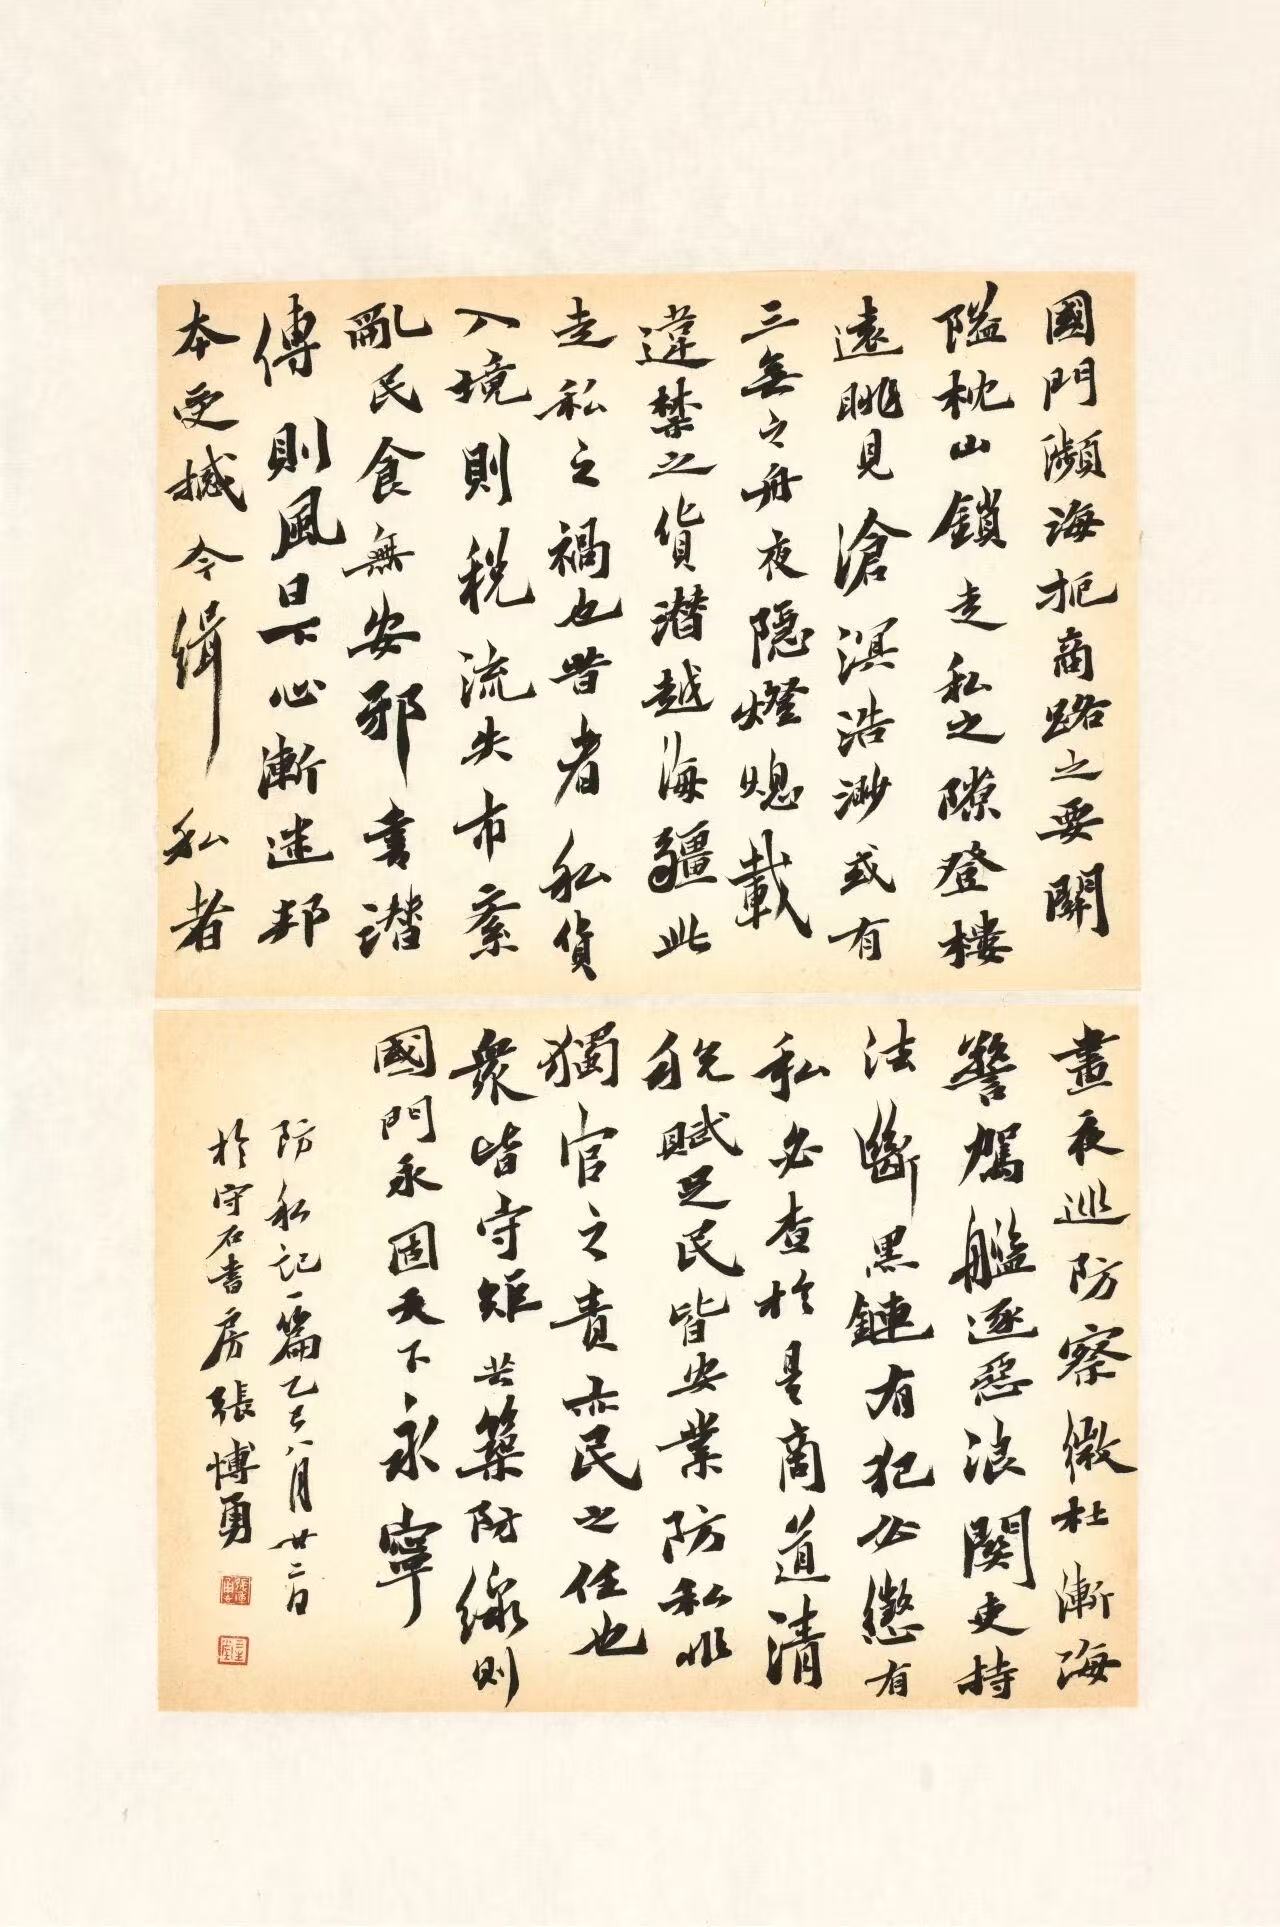 國門瀕海扼商路之要關
隘枕山鎖走私之隙登樓
遠眺見滄溟浩渺或有
三無之舟夜隱燈熄載
違禁之貨潛越海疆此
走私之禍也昔者私貨
入境則稅流失市紊
亂民食無安邪書潛
傳則風日下心漸迷邦
本受撼今緝私者
晝夜巡防察微杜漸海
警駕艦逐惡浪關吏持
法斷黑鏈有犯必懲有
私必查於是商道清
稅賦足民皆安業防私非
獨官之責亦民之任也
眾皆守矩共築防線則
國門永固天下永寧
防私記一篇乙巳八月廿二日
於守石書房張博勇